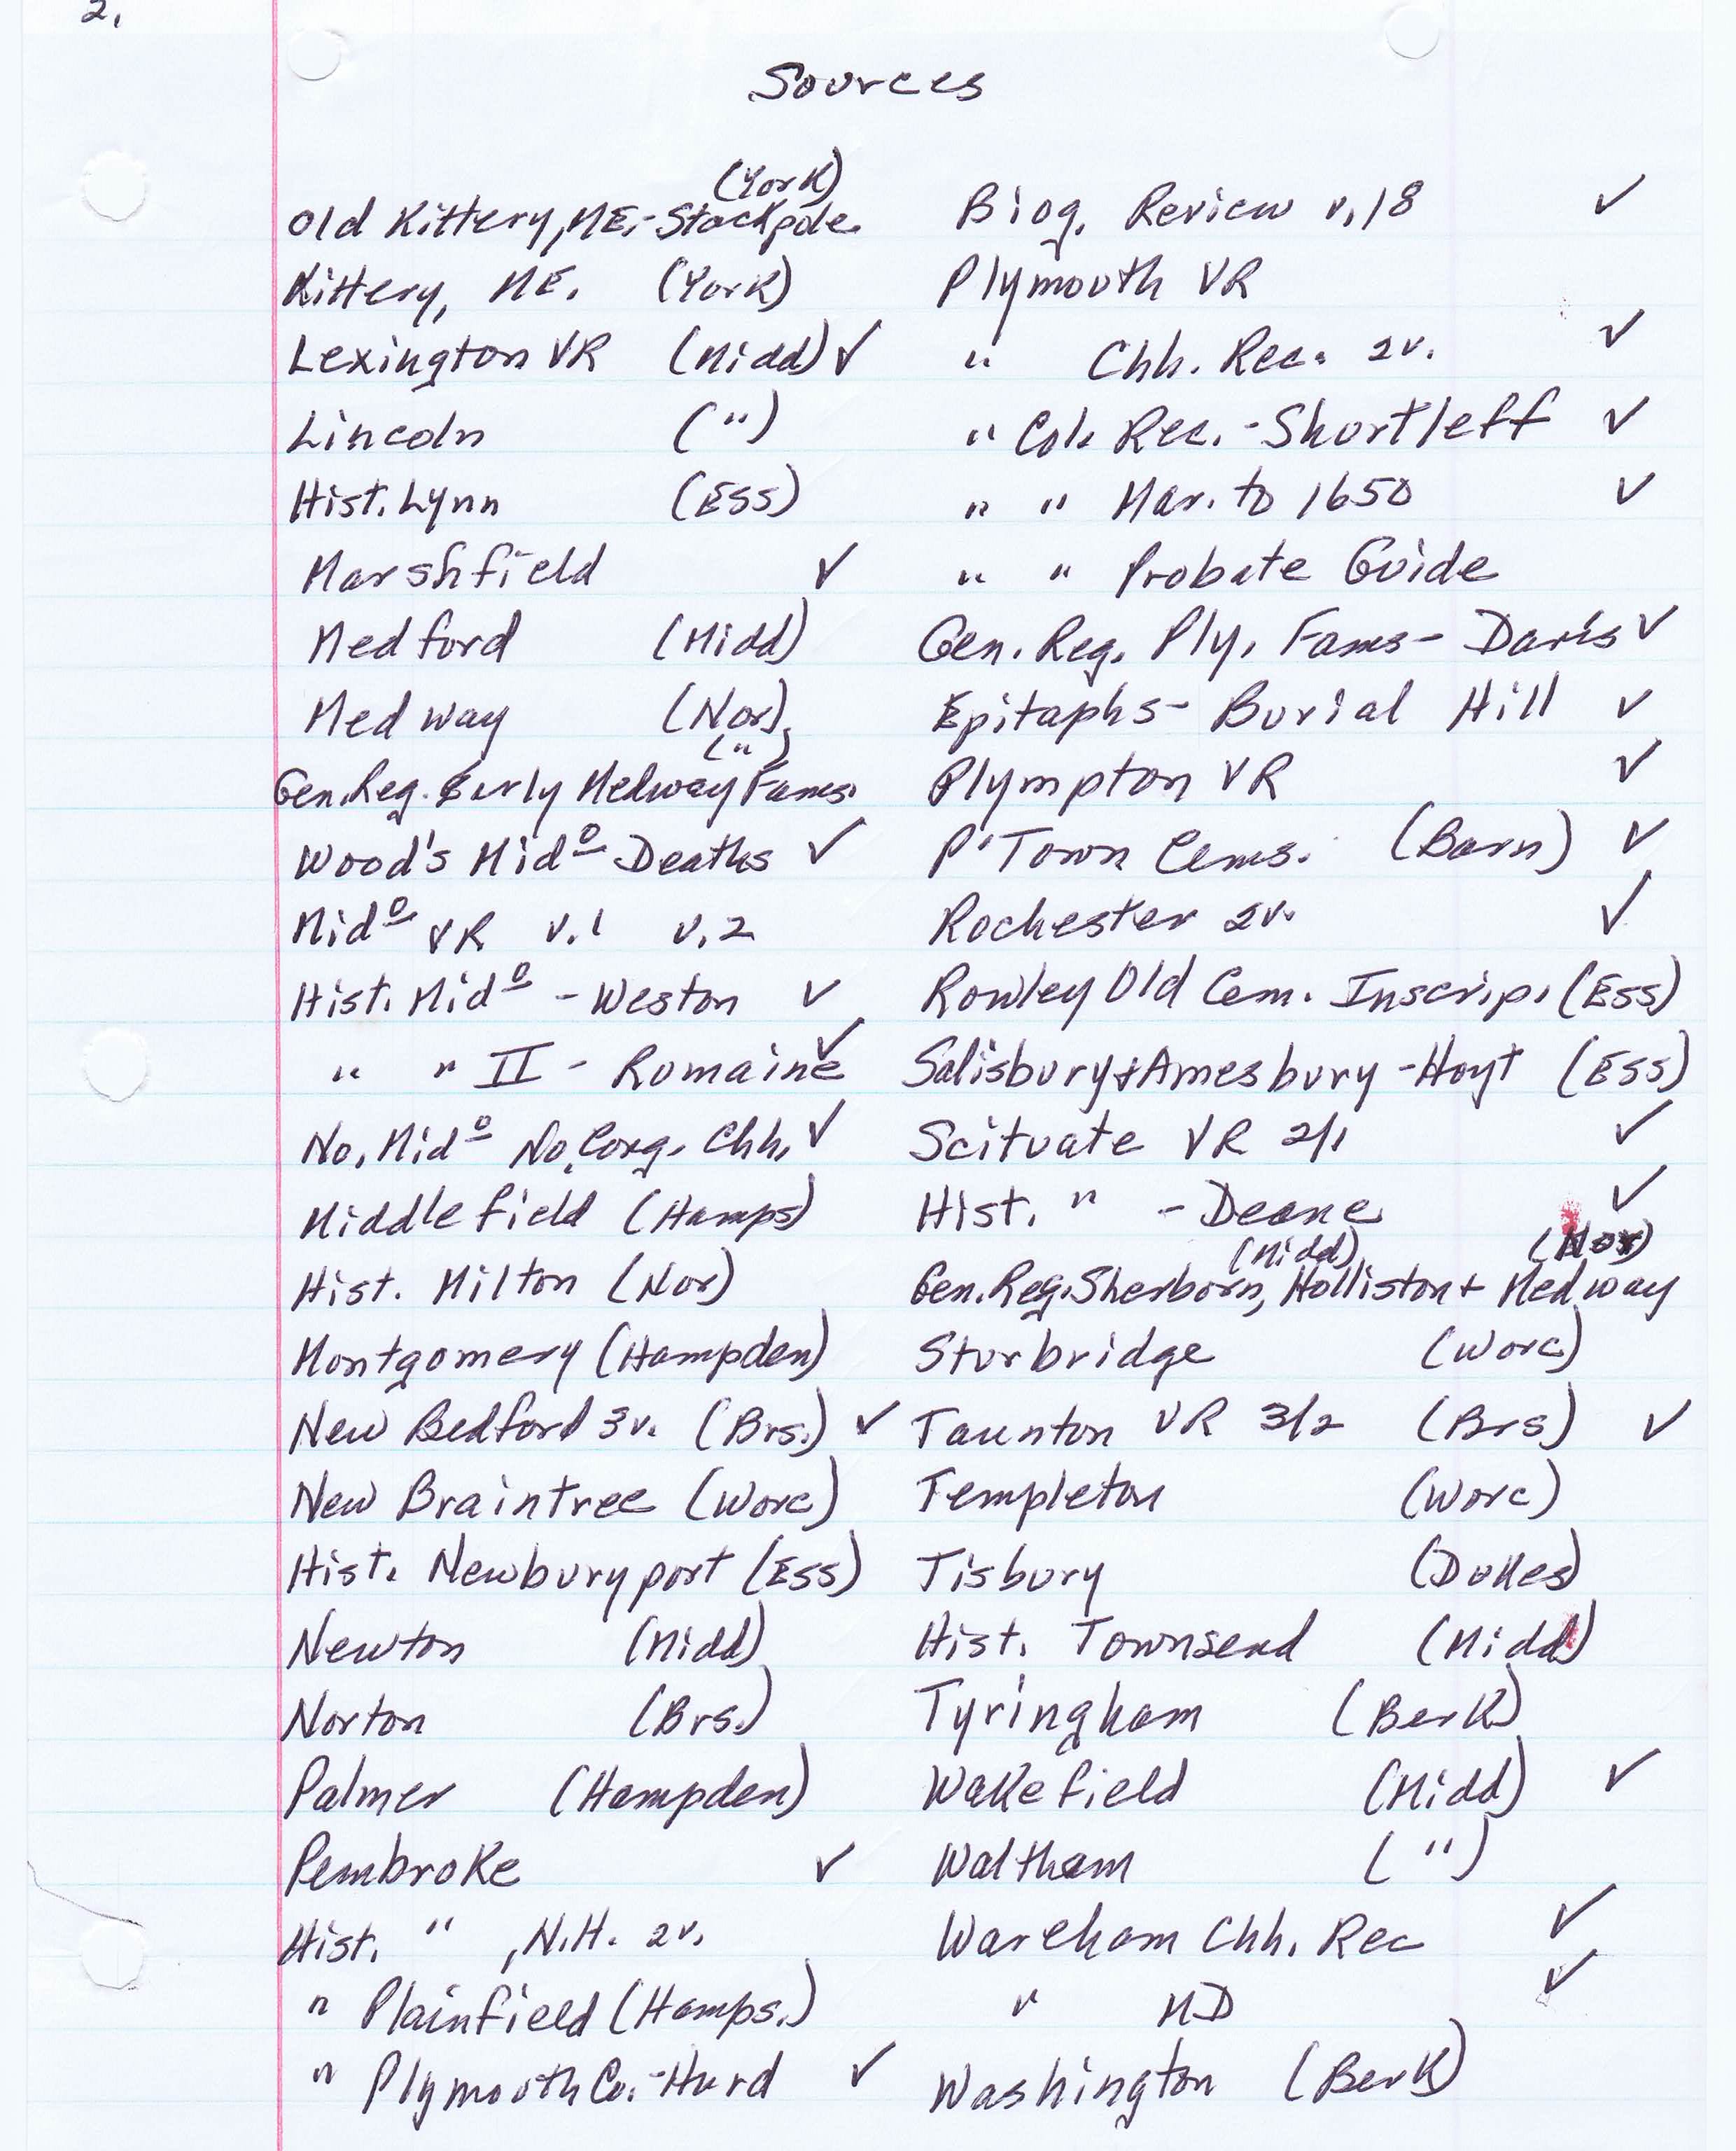 2.
Sources
(York)
Old Kittery, ME.-Stackpole
Kittery, ME. (York)
Lexington VR (Midd) ✓
Lincoln (")
Hist. Lynn (Ess)
Marshfield ✓
Medford (Midd)
Medway (Nor)
(")
Gen. Reg. Early Medway Fams.
Wood's Midº Deaths ✓
Midº VR v.1 v.2
Hist. Midº - Weston ✓
" " II - Romaine ✓
No. Midº No. Cong. Chh. ✓
Middlefield (Hamps)
Hist. Milton (Nor)
Montgomery (Hampden)
New Bedford 3v. (Brs.) ✓
New Braintree (Worc)
Hist. Newburyport (Ess)
Newton (Midd)
Norton (Brs.)
Palmer (Hampden)
Pembroke ✓
Hist. " , N.H. 2v.
" Plainfield (Hamps.)
" Plymouth Co.-Hurd ✓
Biog. Review v.18 ✓
Plymouth VR
" Chh. Rec. 2v. ✓
" Col. Rec. - Shurtleff ✓
" " Mar. to 1650 ✓
" " Probate Guide
Gen. Reg. Ply. Fams- Davis ✓
Epitaphs- Burial Hill ✓
Plympton VR ✓
P'Town Cems. (Barn) ✓
Rochester 2v. ✓
Rowley Old Cem. Inscrip. (Ess)
Salisbury + Amesbury - Hoyt (Ess)
Scituate VR 2/1 ✓
Hist. " - Deane ✓
(Midd) (Nor)
Gen. Reg. Sherborn, Holliston + Medway
Sturbridge (Worc)
Taunton VR 3/2 (Brs) ✓
Templeton (Worc)
Tisbury (Dukes)
Hist. Townsend (Midd)
Tyringham (Berk)
Wakefield (Midd) ✓
Waltham (")
Wareham Chh. Rec ✓
" MD ✓
Washington (Berk)